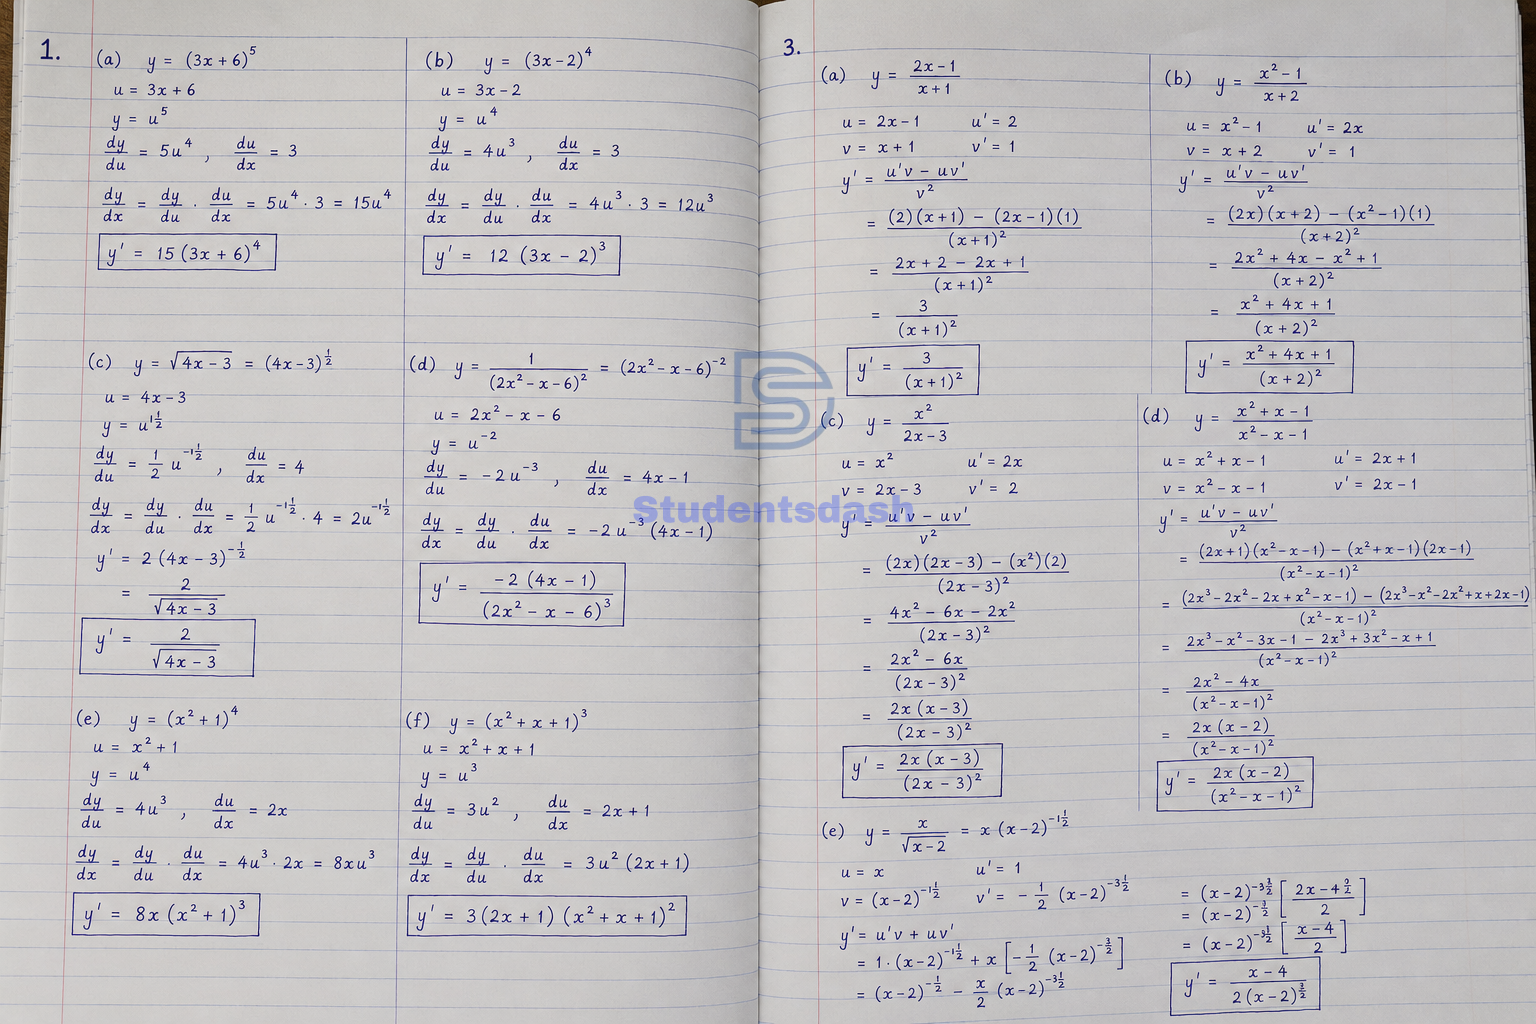 1.
(a) y = (3x + 6)^5
u = 3x + 6
y = u^5
dy/du = 5u^4 , du/dx = 3
dy/dx = dy/du · du/dx = 5u^4 · 3 = 15u^4
y' = 15 (3x + 6)^4
(b) y = (3x - 2)^4
u = 3x - 2
y = u^4
dy/du = 4u^3 , du/dx = 3
dy/dx = dy/du · du/dx = 4u^3 · 3 = 12u^3
y' = 12 (3x - 2)^3
(c) y = √(4x - 3) = (4x - 3)^(1/2)
u = 4x - 3
y = u^(1 1/2)
dy/du = 1/2 u^(-1 1/2) , du/dx = 4
dy/dx = dy/du · du/dx = 1/2 u^(-1 1/2) · 4 = 2u^(-1 1/2)
y' = 2 (4x - 3)^(-1/2)
= 2/√(4x - 3)
y' = 2/√(4x - 3)
(d) y = 1/(2x² - x - 6)² = (2x² - x - 6)^-2
u = 2x² - x - 6
y = u^-2
dy/du = -2u^-3 , du/dx = 4x - 1
dy/dx = dy/du · du/dx = -2u^-3 (4x - 1)
y' = -2 (4x - 1)/(2x² - x - 6)³
(e) y = (x² + 1)^4
u = x² + 1
y = u^4
dy/du = 4u^3 , du/dx = 2x
dy/dx = dy/du · du/dx = 4u^3 · 2x = 8xu^3
y' = 8x (x² + 1)^3
(f) y = (x² + x + 1)^3
u = x² + x + 1
y = u^3
dy/du = 3u^2 , du/dx = 2x + 1
dy/dx = dy/du · du/dx = 3u² (2x + 1)
y' = 3 (2x + 1) (x² + x + 1)²
3.
(a) y = (2x - 1)/(x + 1)
u = 2x - 1 u' = 2
v = x + 1 v' = 1
y' = (u'v - uv')/v²
= ((2)(x + 1) - (2x - 1)(1))/(x + 1)²
= (2x + 2 - 2x + 1)/(x + 1)²
= 3/(x + 1)²
y' = 3/(x + 1)²
(b) y = (x² - 1)/(x + 2)
u = x² - 1 u' = 2x
v = x + 2 v' = 1
y' = (u'v - uv')/v²
= ((2x)(x + 2) - (x² - 1)(1))/(x + 2)²
= (2x² + 4x - x² + 1)/(x + 2)²
= (x² + 4x + 1)/(x + 2)²
y' = (x² + 4x + 1)/(x + 2)²
(c) y = x²/(2x - 3)
u = x² u' = 2x
v = 2x - 3 v' = 2
y' = (u'v - uv')/v²
= ((2x)(2x - 3) - (x²)(2))/(2x - 3)²
= (4x² - 6x - 2x²)/(2x - 3)²
= (2x² - 6x)/(2x - 3)²
= 2x (x - 3)/(2x - 3)²
y' = 2x (x - 3)/(2x - 3)²
(d) y = (x² + x - 1)/(x² - x - 1)
u = x² + x - 1 u' = 2x + 1
v = x² - x - 1 v' = 2x - 1
y' = (u'v - uv')/v²
= ((2x + 1)(x² - x - 1) - (x² + x - 1)(2x - 1))/(x² - x - 1)²
= ((2x³ - 2x² - 2x + x² - x - 1) - (2x³ - x² - 2x² + x + 2x - 1))/(x² - x - 1)²
= (2x³ - x² - 3x - 1 - 2x³ + 3x² - x + 1)/(x² - x - 1)²
= (2x² - 4x)/(x² - x - 1)²
= 2x (x - 2)/(x² - x - 1)²
y' = 2x (x - 2)/(x² - x - 1)²
(e) y = x/√(x - 2) = x (x - 2)^(-1 1/2)
u = x u' = 1
v = (x - 2)^(-1 1/2) v' = - 1/2 (x - 2)^(-3 1/2)
y' = u'v + uv'
= 1 · (x - 2)^(-1 1/2) + x [- 1/2 (x - 2)^(-3/2)]
= (x - 2)^(-1/2) - x/2 (x - 2)^(-3 1/2)
= (x - 2)^(-3 1/2) [(2x - 4)/2]
= (x - 2)^(-3/2)
= (x - 2)^(-3 1/2) [(x - 4)/2]
y' = (x - 4)/(2 (x - 2)^(3/2))
Studentsdash